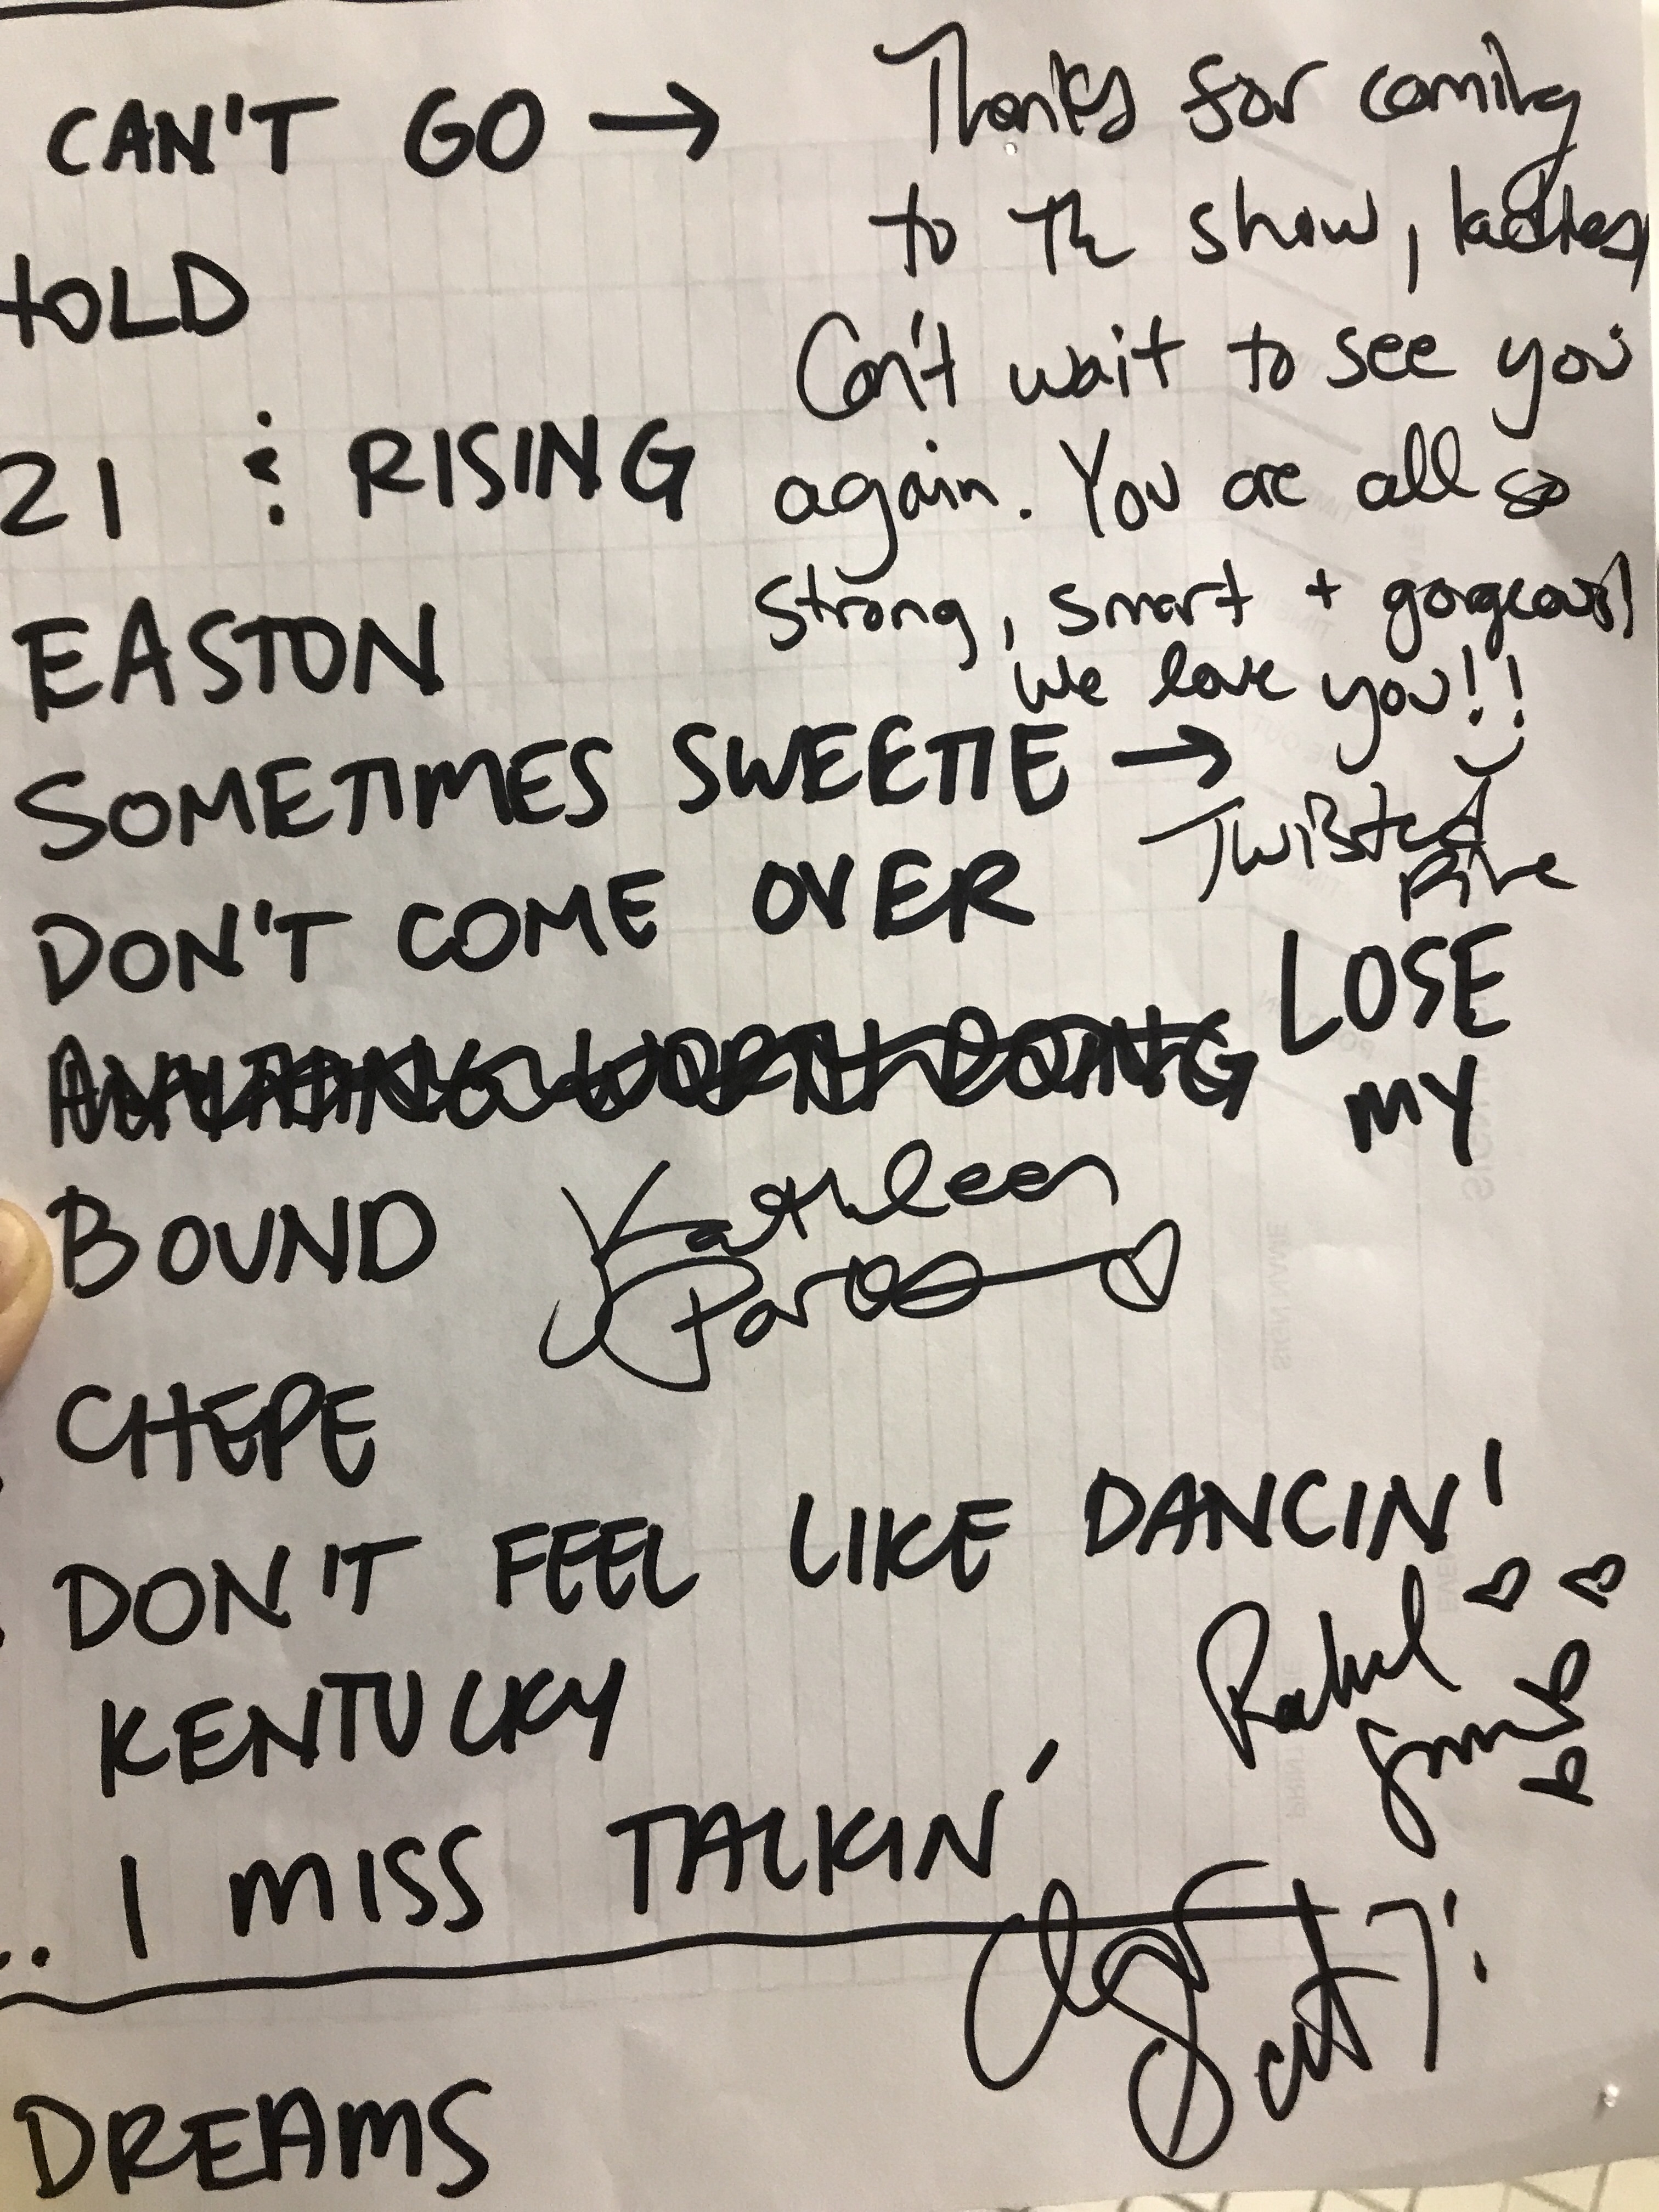 CAN'T GO →
Thanks for coming
to the show, ladies,
HOLD
Can't wait to see you
again. You are all so
21 & RISING
strong, smart + gorgeous!
We love you!!
EASTON
SOMETIMES SWEETIE →
Twisted
Pine
DON'T COME OVER
ANYTHING WORTH DOING
LOSE
MY
BOUND
Kathleen
Parks
CHEPE
DON'T FEEL LIKE DANCIN'
KENTUCKY
Rachel
.. I MISS TALKIN'
DREAMS